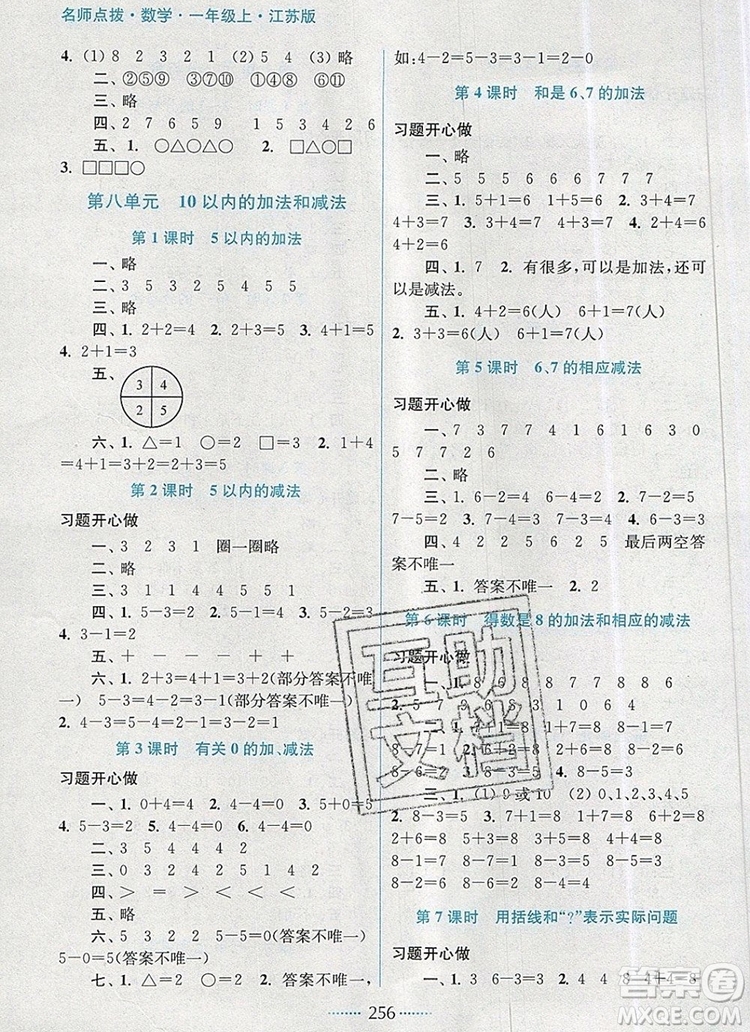 名师点拨·数学·一年级上·江苏版
4. (1) 8 2 (2) 3 5 1 (3) 略
二、②⑤⑨ ③⑦⑩ ⑥⑪
三、略
四、2 7 6 5 9 1 5 3 4 2 6
五、1. ○△○△○ 2. □△□○
3. □□□○
第八单元 10 以内的加法和减法
第 1 课时 5 以内的加法
一、略
二、3 5 3 5 2 4 5 5
三、略
四、1. 2+2=4 2. 2+3=5 3. 4+1=5
4. 2+1=3
五、
3 4
2 5
六、1. △=1 ○=2 □=3 2. 1+4
=4+1=3+2=2+3=5
第 2 课时 5 以内的减法
习题开心做
一、3 2 3 1 圈一圈略
二、略
三、1 1 1 4 4 5 5 1
四、1. 5-3=2 2. 5-4=1 3. 5-2=3
4. 3-1=2
五、+ - - - + +
六、1. 2+3=1+4=5(部分答案不唯
一) 5-3=4-2=3-1(部分答案不唯一)
2. 4-3=5-4=2-1
第 3 课时 有关 0 的加、减法
习题开心做
一、1. 0+4=4 2. 4-4=0 3. 5+0=5
4. 5-3=2 5. 4-0=4 6. 4-4=0
二、3 5 4 0 2 5 1 2 4 2
三、3 4 5 3 0 4
四、> = > < < <
五、+ - - + - +
六、5 3 2 2 5-5=0(答案不唯一)
5-0=5(答案不唯一)
七、1. △=0 ○=2 2. (答案不唯一)
如:4-2=5-3 5-0=4+1
第 4 课时 和是 6、7 的加法
习题开心做
一、略
二、5 5 5 6 6 6 7 7 7
三、1. 5+1=6 1+5=6 2. 3+4=7
4+3=7 3. 5+2=7 2+5=7 4. 2+4=6
4+2=6
四、1. 7 2. 有很多,可以是加法,还可
以是减法。
五、1. 4+2=6(人) 6+1=7(人)
2. 3+3=6(人) 6+1=7(人)
第 5 课时 6、7 的相应减法
习题开心做
一、7 3 7 7 4 1 6 1 6 3 0
5 7 7 2 6
二、略
三、1. 6-2=4 6-4=2 2. 7-2=5
7-5=2 3. 7-4=3 7-3=4 4. 6-3=3
四、4 2 2 5 6 2 5 最后两空答
案不唯一
五、1. 答案不唯一 2. 2
第 6 课时 得数是 8 的加法和相应的减法
习题开心做
8-7=1 8-1=7
8-6=2 8-3=5 8-5=3
三、1. (1) 9 或 10 (2)
2. 1+7=8 7+1=8 6+2=8
2+6=8 3+5=8 5+3=8 4+4=8
8-1=7 8-7=1 8-2=6 8-6=2
8-3=5 8-5=3 8-4=4
第 7 课时 用括线和“?”表示实际问题
习题开心做
256
互助
文档
答案圈
MXQE.COM